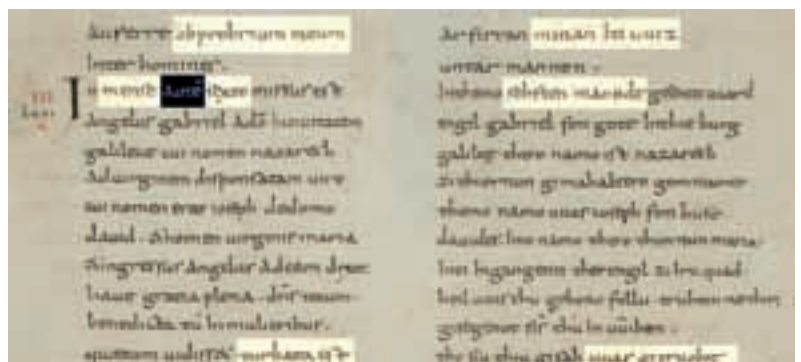 auferre obprobrium meum
inter homines.
In mense autē sexto missus est
angelus gabriel a dō in ciuitatem
galileae cui nomen nazareth
ad uirginem desponsatam uiro
cui nomen erat ioseph de domo
dauid & nomen uirginis maria
& ingressus angelus ad eam dixit
haue gratia plena dn̄s tecum
benedicta tu in mulieribus.
turbata est
arfirran minan itiuuiz
untar mannon.
In themo sehsten manude uuard
engil gabriel fon gote in thie burg
thero namo ist nazareth
zi thiornun gimahaltero gommanne
themo namo uuas ioseph fon huse
dauides inti namo thero thiornun maria.
Inti ingangenti ther engil zi iru quad
heil uuis thu gebono follu
sis thu in uuibun.
tho siu thiu gisah uuas